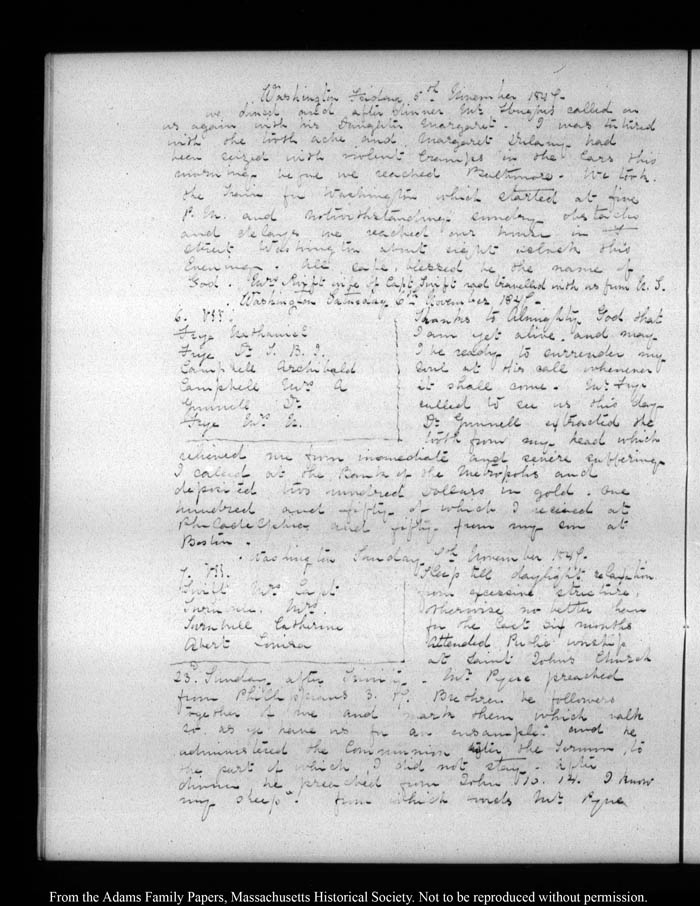 Washington Friday 5th November 1847.
we dined and after dinner Mr Hughes called on
us again with his Daughter Margaret. I was tortured
with the tooth ache and Margaret Dulany had
been seized with violent Cramps in the Cars this
morning before we reached Baltimore. We took
the train for Washington which started at five
P.M. and notwithstanding sundry obstacles
and delays we reached our house in F
Street Washington about eight o'clock this
Evening. All safe, blessed be the name of
God. Mrs Swift wife of Capt. Swift had travelled with us from N.Y.
Washington Saturday 6th November 1847.
6. VII.
Frye Nathaniel
Frye Dr T. B. J.
Campbell Archibald
Campbell Mrs A
Gunnell Dr
Frye Mrs N.
Thanks to Almighty God that
I am yet alive, and may
I be ready to surrender my
soul at His call whenever
it shall come. Mr Frye
called to see us this day
Dr Gunnell extracted the
tooth from my head which
relieved me from immediate and severe suffering
I called at the Bank of the Metropolis and
deposited two hundred Dollars in gold. one
hundred and fifty of which I received at
Philadelphia and fifty from my son at
Boston.
Washington Sunday 7th November 1847.
7. VII.
Swift Mrs Capt
Turnbull Mrs.
Turnbull Catherine
Abert Louisa
Sleep till daylight relaxation
from excessive stricture,
otherwise no better than
for the last six months
Attended Public worship
at Saint Johns Church
23d Sunday after Trinity. Mr Pyne preached
from Philippians 3. 17. Brethren be followers
together of me and mark them which walk
so as ye have us for an ensample. and he
administered the Communion after the Sermon, to
the part of which I did not stay. After
dinner he preached from John 10. 14. I know
my sheep. from which words Mr Pyne
From the Adams Family Papers, Massachusetts Historical Society. Not to be reproduced without permission.